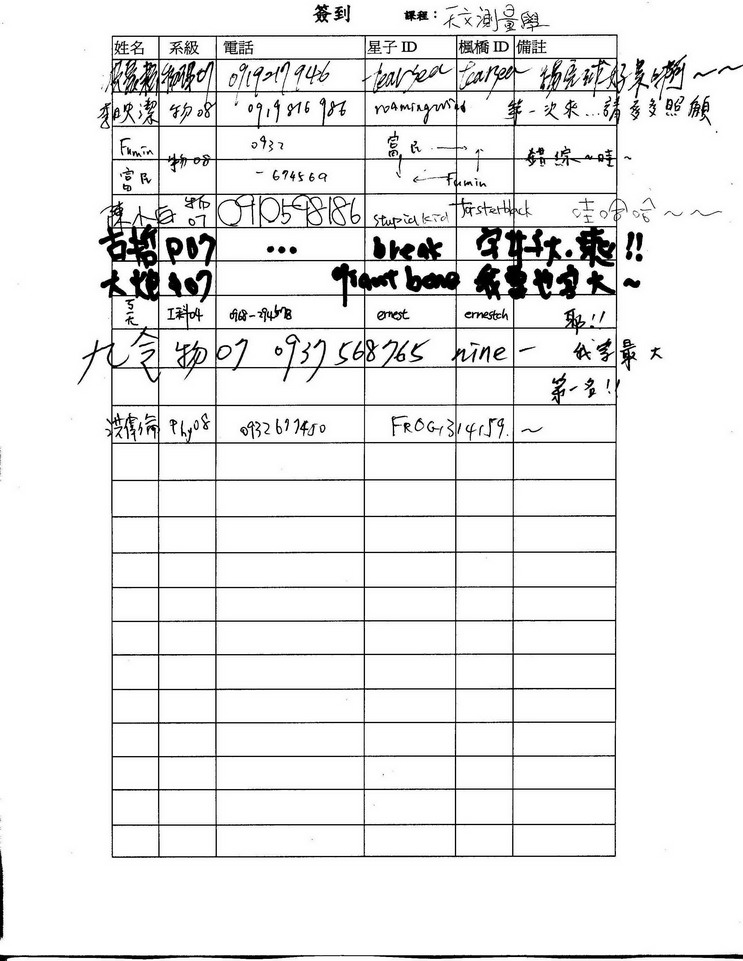 簽到 課程：天文測量學
姓名 系級 電話 星子 ID 楓橋 ID 備註
0919217946 tearsea tearsea 好美
李映潔 物08 0919816986 roamingwind 第一次來...請多多照顧
Fumin 物08 0932 富民 → ↑ 錯綜~哇~
富民 -674569 ↓ ← Fumin
陳小 物07 0910598186 stupid kid forsterback 哇哈哈~~
古哲 P07 ... break !!
大炮 φ07 giant bone 我要也字大~
工科04 ernest ernestch 耶!!
九令 物07 0937568765 nine — 我字最大
第一名!!
洪 Phy08 0932677450 FROG1314159. ~